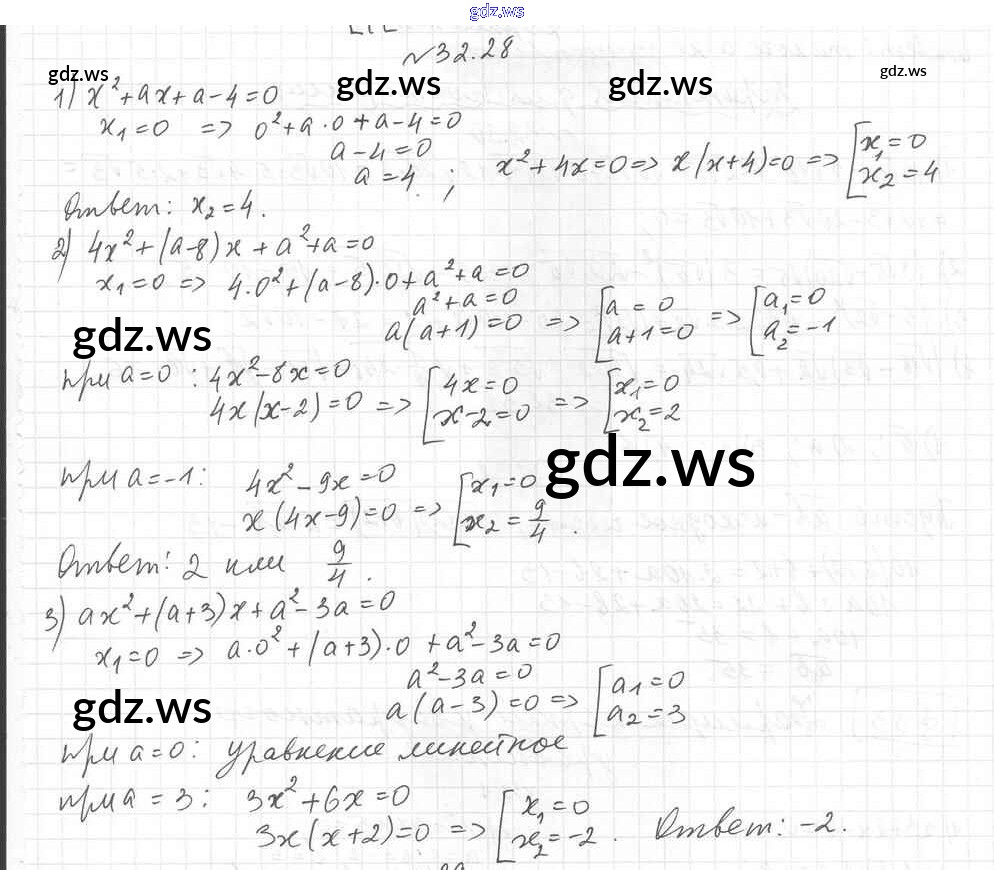 gdz.ws
№32.28
gdz.ws gdz.ws gdz.ws gdz.ws
1) x²+ax+a-4=0
x₁=0 => 0²+a·0+a-4=0
a-4=0
a=4 ; x²+4x=0 => x(x+4)=0 => [x₁=0 x₂=4
Ответ: x₂=4.
2) 4x²+(a-8)x+a²+a=0
x₁=0 => 4·0²+(a-8)·0+a²+a=0
a²+a=0
gdz.ws
a(a+1)=0 => [a=0 a+1=0 => [a₁=0 a₂=-1
при a=0: 4x²-8x=0
4x(x-2)=0 => [4x=0 x-2=0 => [x₁=0 x₂=2
gdz.ws
при a=-1: 4x²-9x=0
x(4x-9)=0 => [x₁=0 x₂=9/4.
Ответ: 2 или 9/4.
3) ax²+(a+3)x+a²-3a=0
x₁=0 => a·0²+(a+3)·0+a²-3a=0
a²-3a=0
gdz.ws
a(a-3)=0 => [a₁=0 a₂=3
при a=0: уравнение линейное
при a=3: 3x²+6x=0
3x(x+2)=0 => [x₁=0 x₂=-2. Ответ: -2.